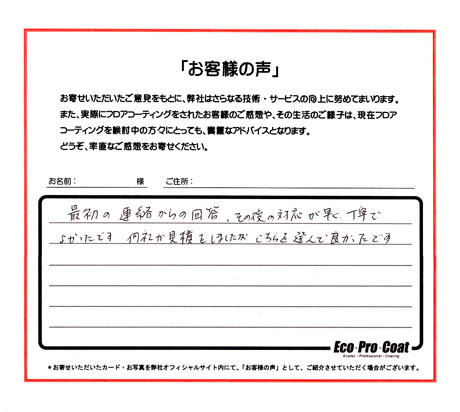 「お客様の声」
お寄せいただいたご意見をもとに、弊社はさらなる技術・サービスの向上に努めてまいります。
また、実際にフロアコーティングをされたお客様のご感想や、その生活のご様子は、現在フロア
コーティングを検討中の方々にとっても、貴重なアドバイスとなります。
どうぞ、率直なご感想をお寄せください。
お名前： 様 ご住所：
最初の連絡からの回答、その後の対応が早く丁寧で
よかったです 何社か見積をしましたが こちらを選んで良かったです
Eco・Pro・Coat
Ecotex・Professional・Coating
＊お寄せいただいたカード・お写真を弊社オフィシャルサイト内にて、「お客様の声」として、ご紹介させていただく場合がございます。